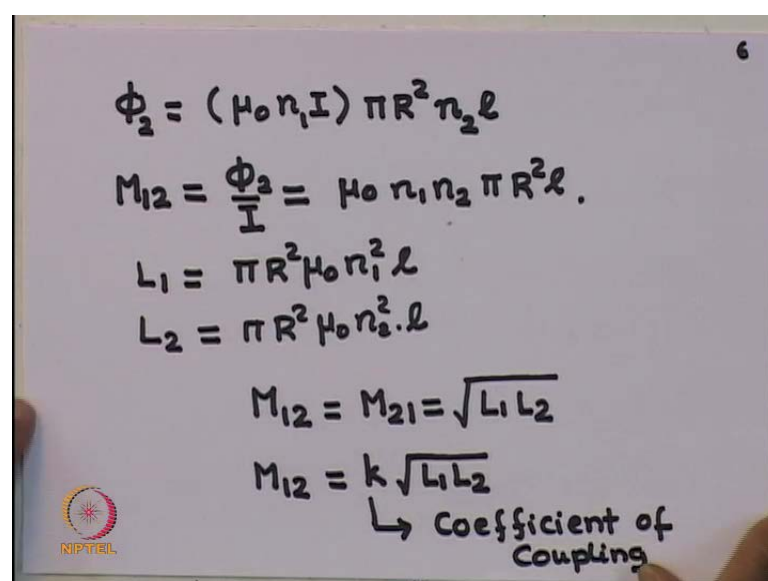 6
Φ₂ = (μ₀ n₁ I) πR² n₂ l
M₁₂ = Φ₂/I = μ₀ n₁ n₂ πR² l .
L₁ = πR² μ₀ n₁² l
L₂ = πR² μ₀ n₂² . l
M₁₂ = M₂₁ = √(L₁ L₂)
M₁₂ = k √(L₁ L₂)
↳ Coefficient of
Coupling
NPTEL